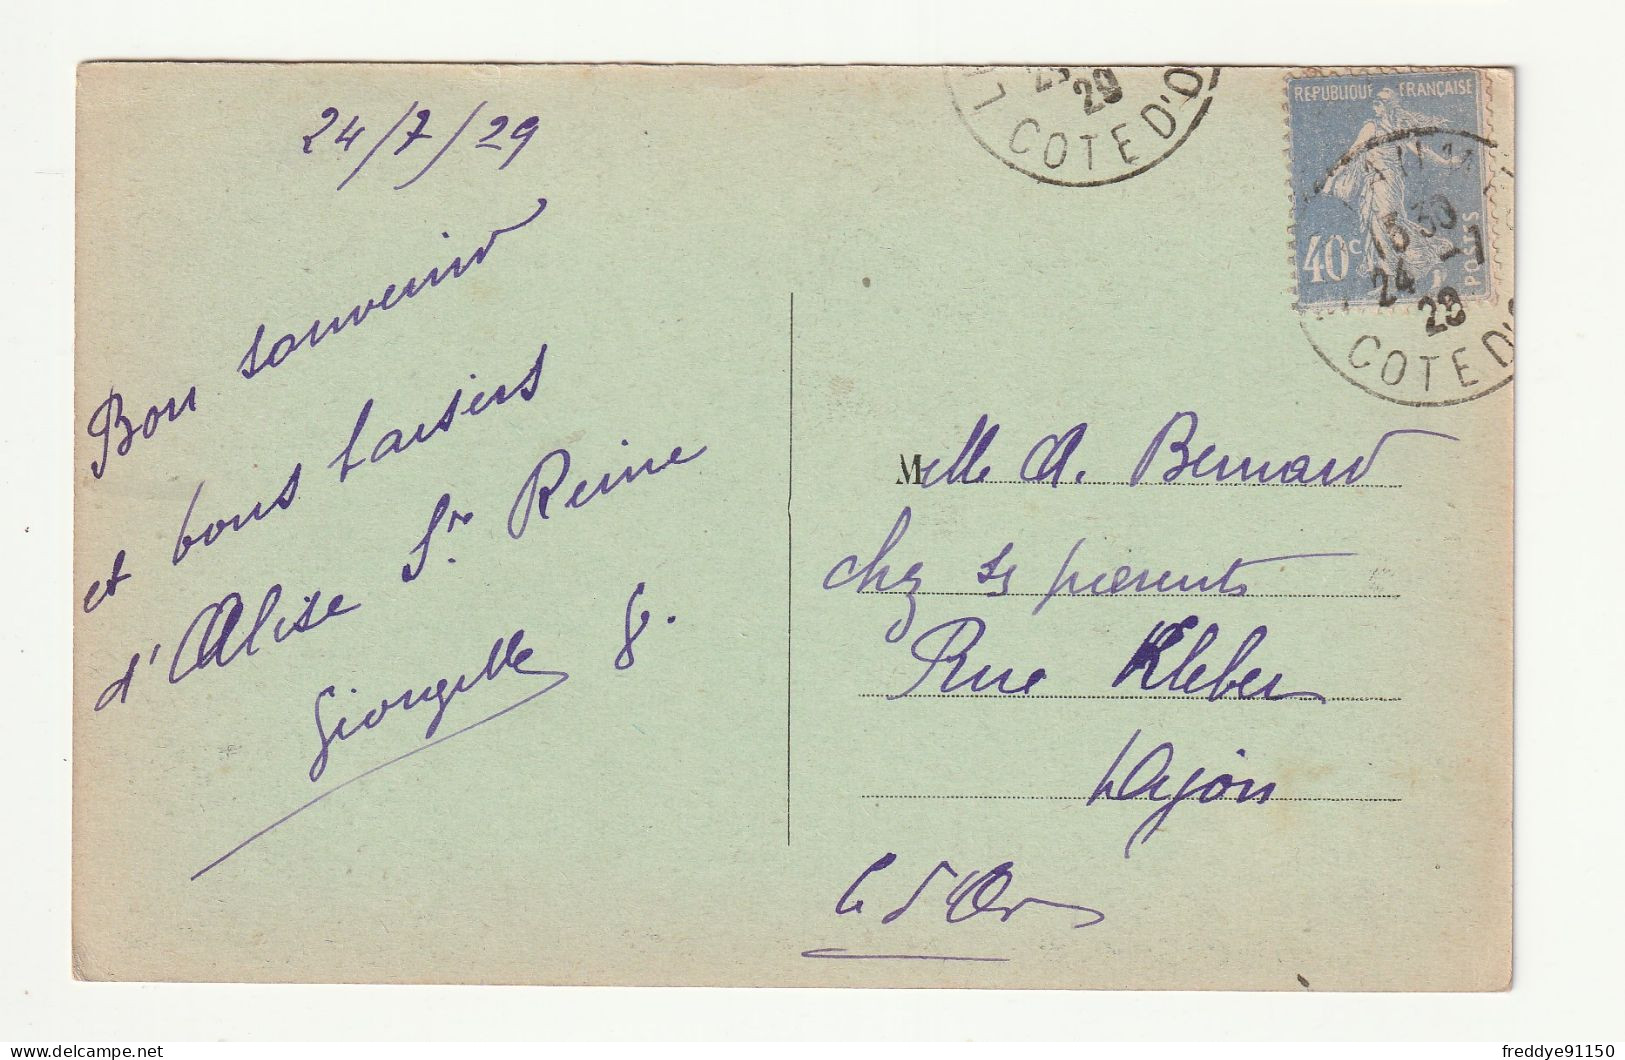 24/7/29
Bon souvenir
et bons baisers
d'Alise Ste Reine
G.
COTE D'O
29
REPUBLIQUE FRANÇAISE
40c
POSTES
15 30
24 -7
29
COTE D'
Melle A. Bernard
chez ses parents
Rue Kleber
Dijon
C. d'Or
freddye91150